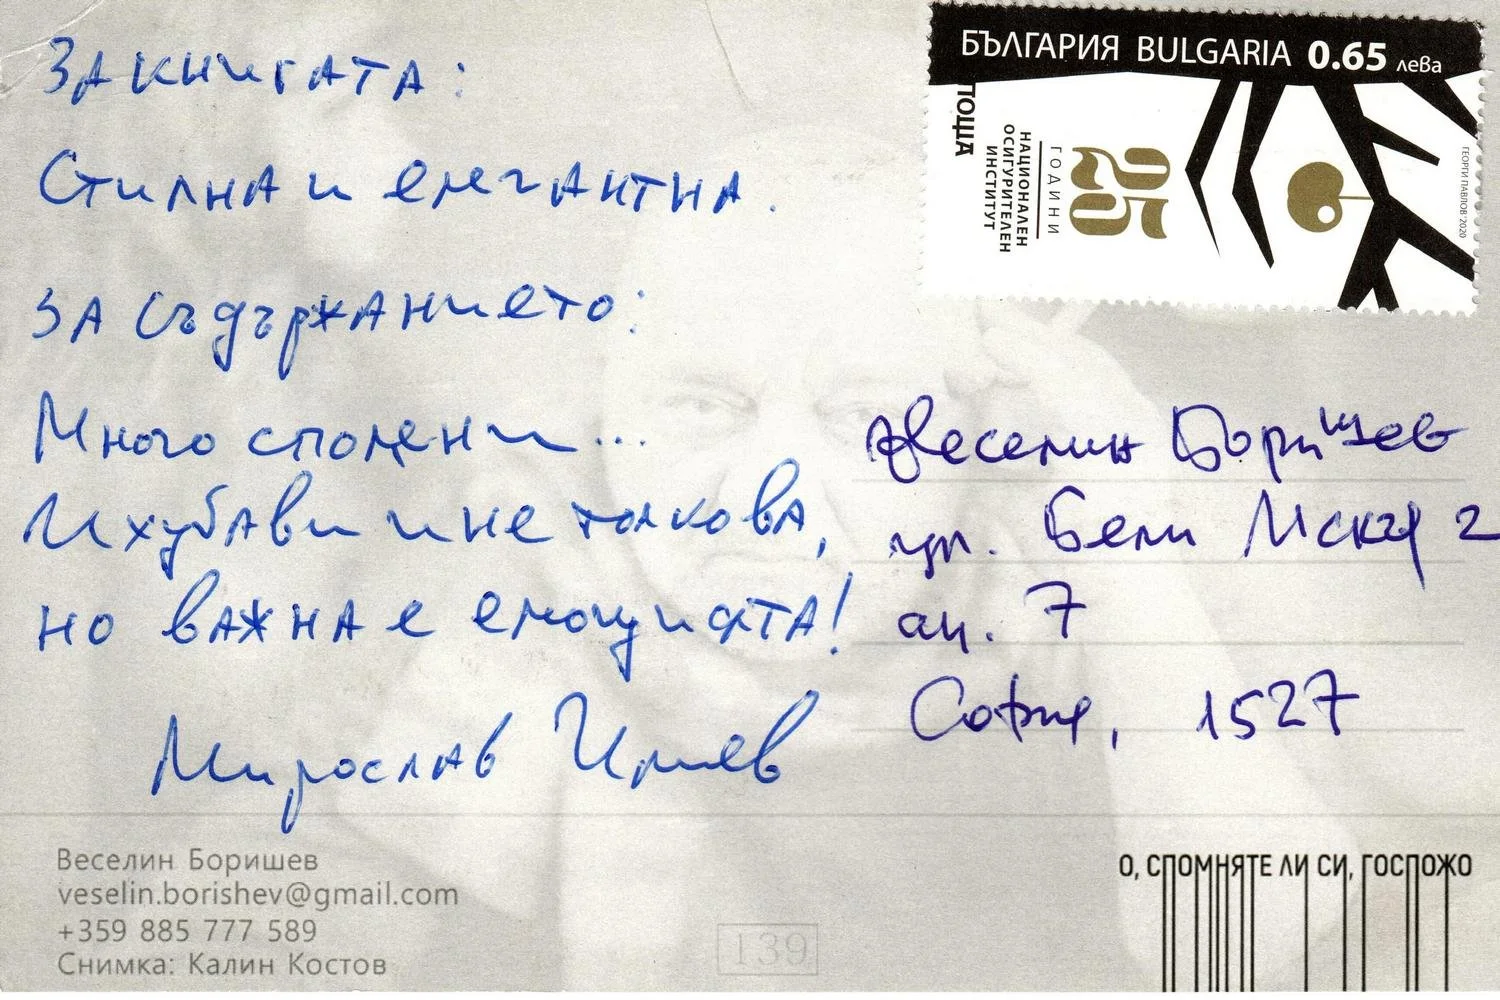 За книгата:
Стилна и елегантна.
За съдържанието:
Много спомени...
И хубави и не толкова,
но важна е емоцията!
Мирослав
БЪЛГАРИЯ BULGARIA 0.65 лева
ПОЩА
25
ГОДИНИ
НАЦИОНАЛЕН
ОСИГУРИТЕЛЕН
ИНСТИТУТ
ГЕОРГИ ПАВЛОВ '2020
Веселин Боришев
ул. Бели Искър 2
ап. 7
София, 1527
Веселин Боришев
veselin.borishev@gmail.com
+359 885 777 589
Снимка: Калин Костов
139
О, СПОМНЯТЕ ЛИ СИ, ГОСПОЖО